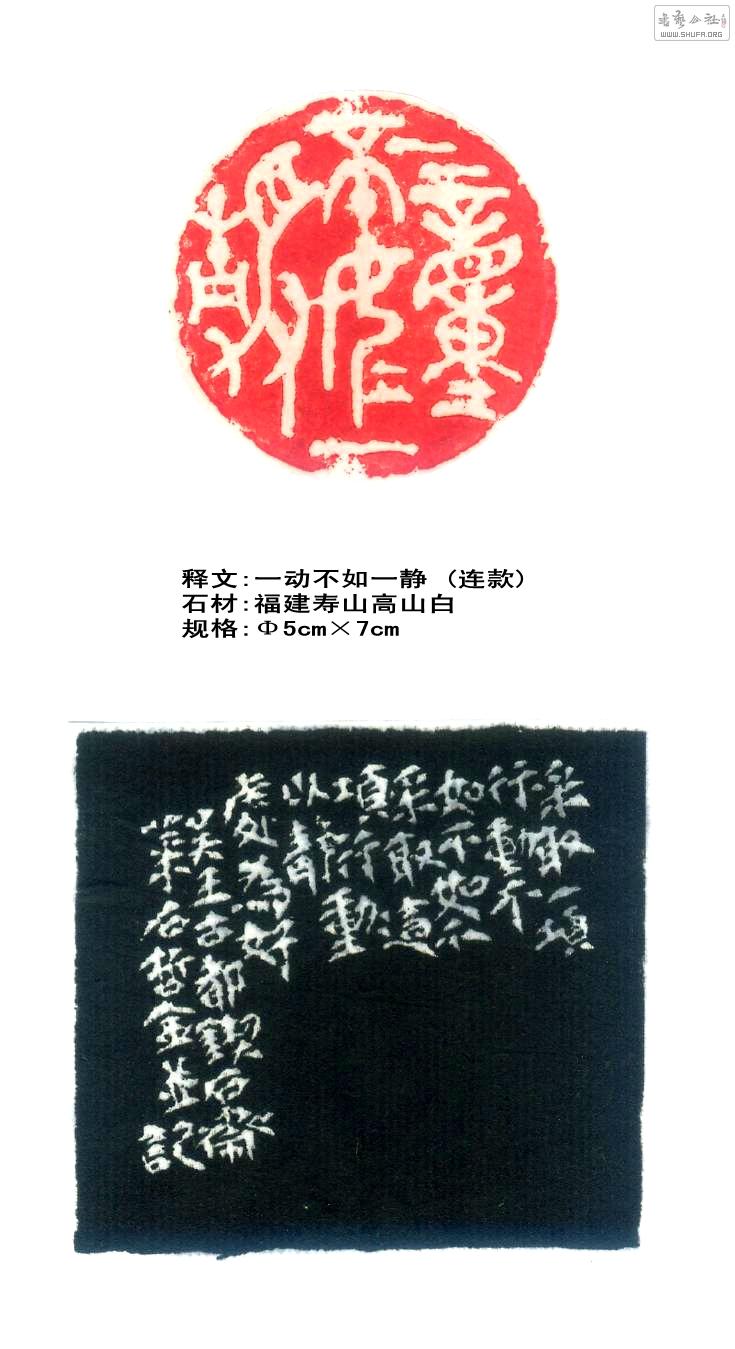 书艺公社
WWW.SHUFA.ORG
一動
不如
一
靜
释文:一动不如一静（连款）
石材:福建寿山高山白
规格:Φ5cm×7cm
采取一項
行動不
如不如不
采取這
項行動
以靜
處為好
王古都鍥石齋
石哲金並記